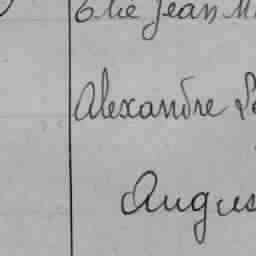 Elie Jean M
Alexandre
Augus